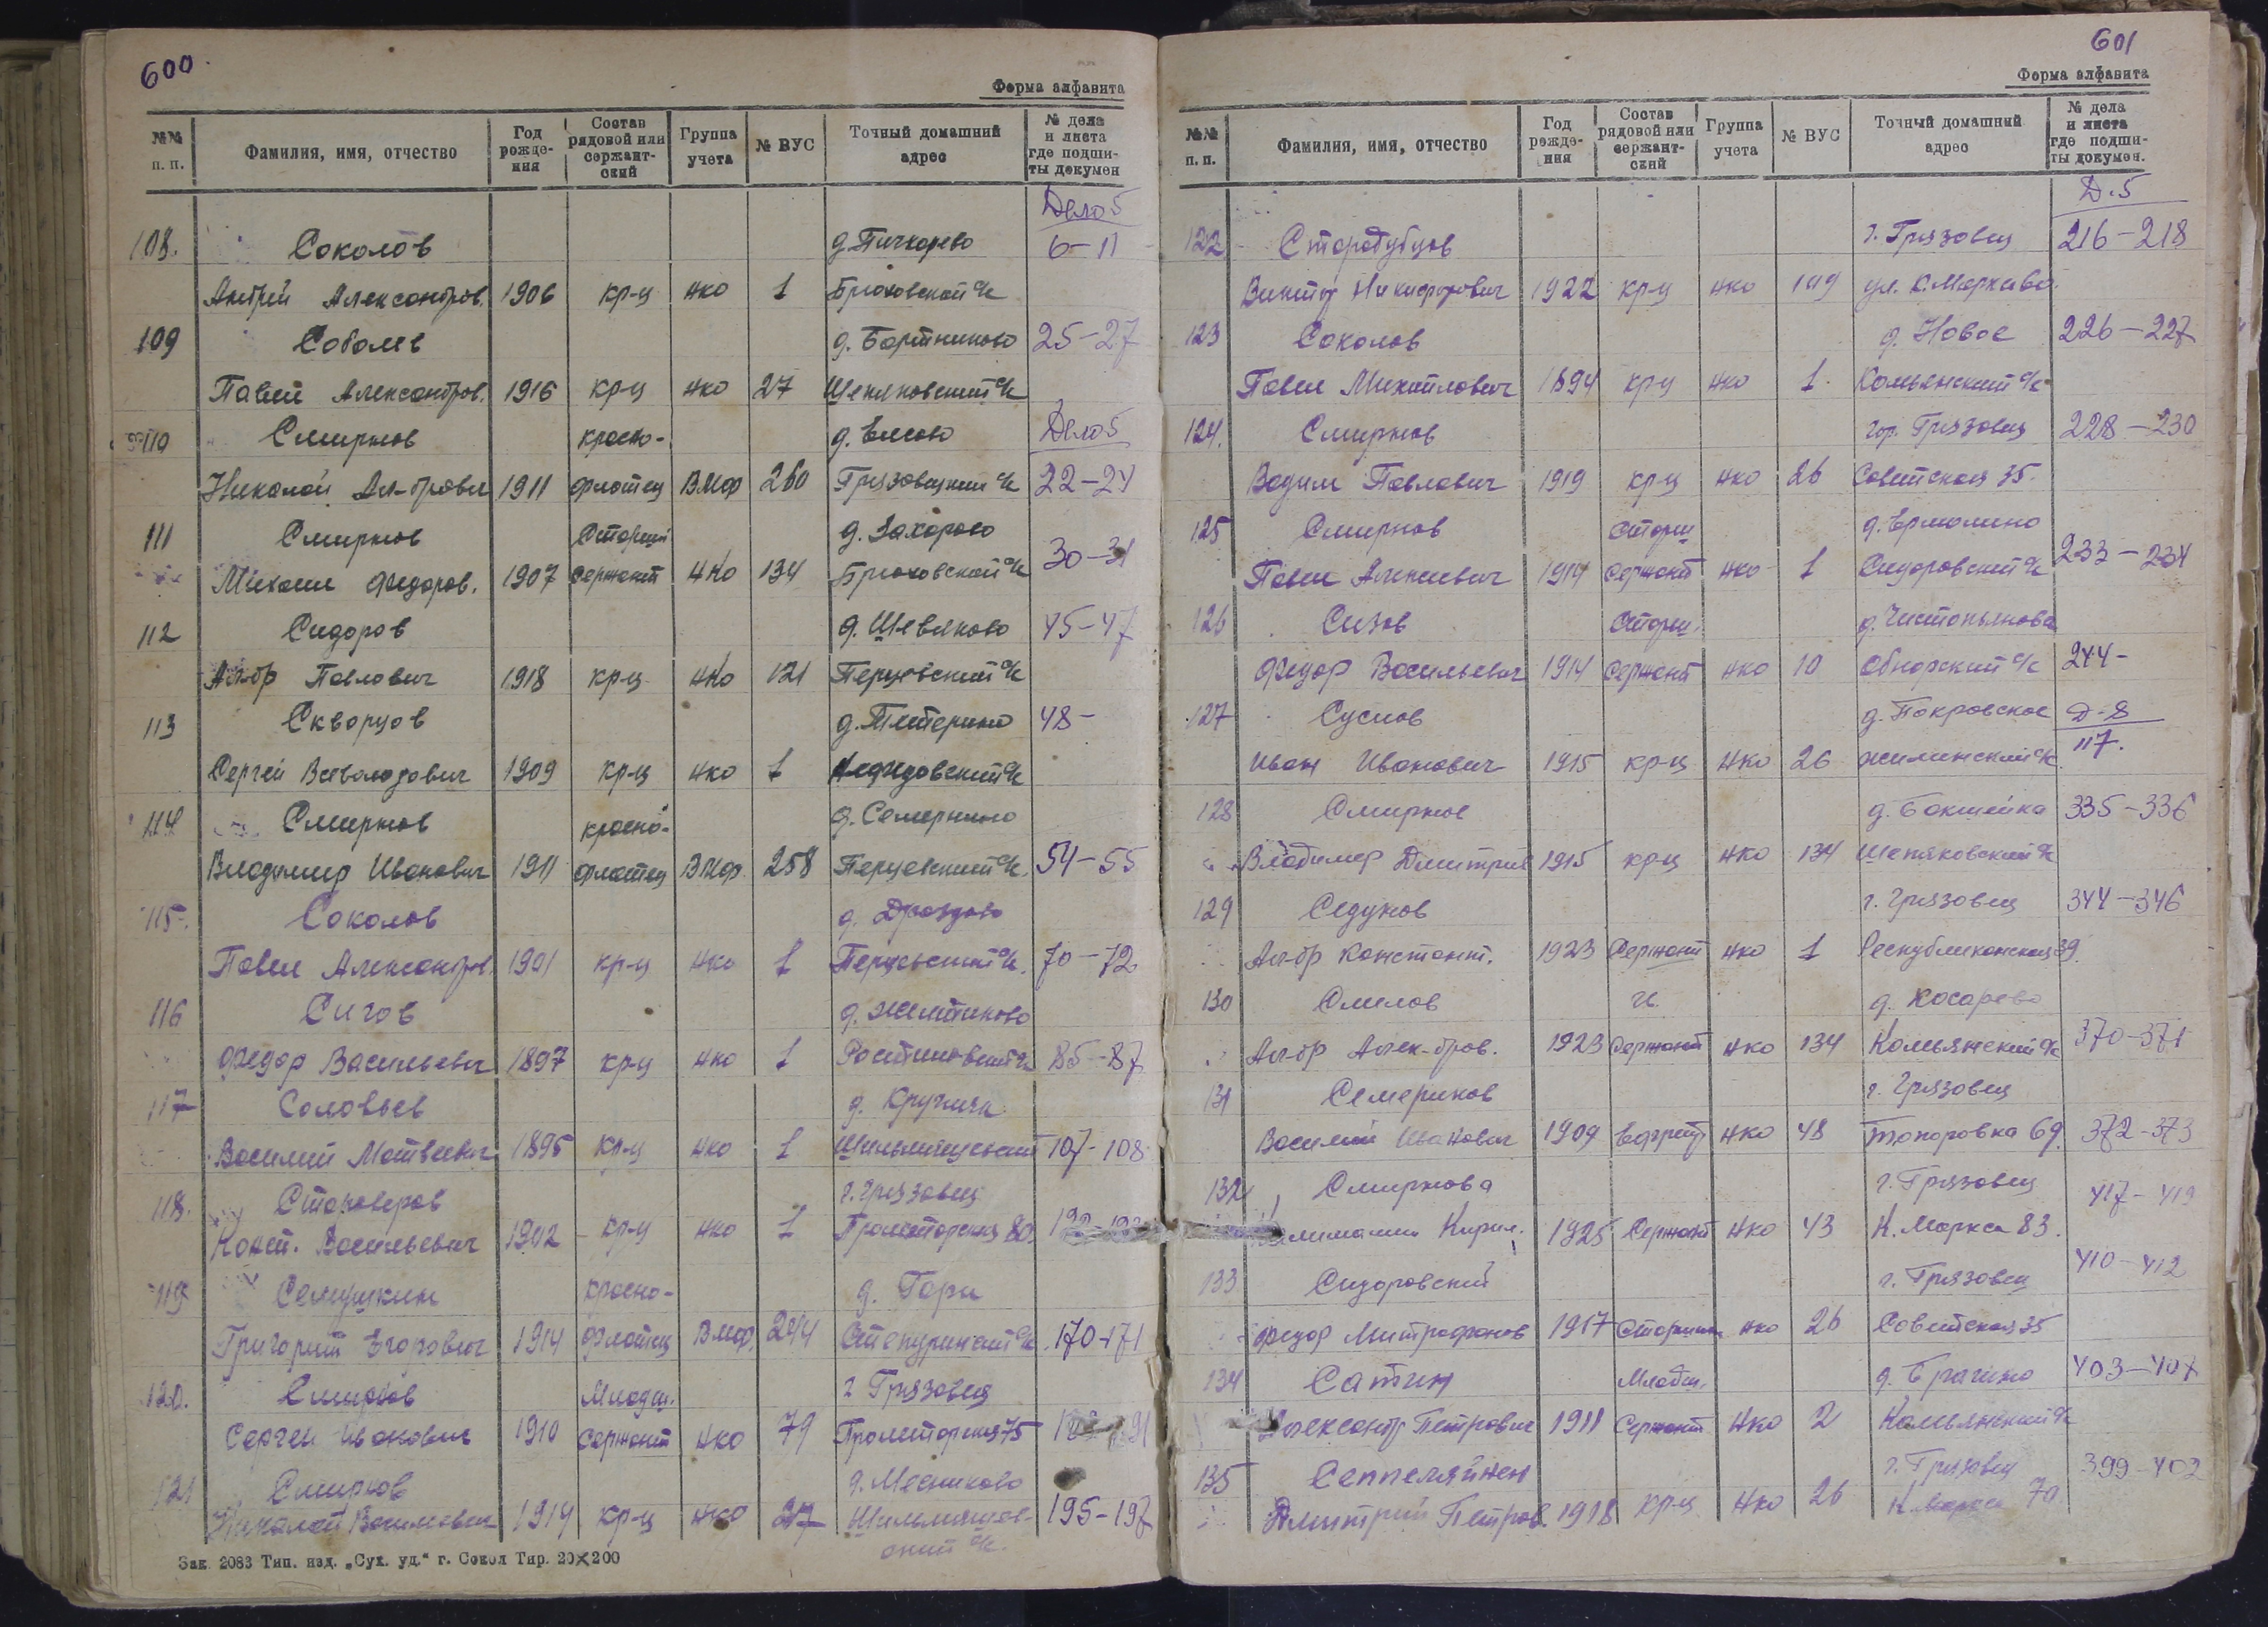 600
Форма алфавита
№№ п. п. Фамилия, имя, отчество Год рожде-ния Состав рядовой или сержант-ский Группа учета № ВУС Точный домашний адрес № дела и листа где подши-ты докумен
Дело 5
108. Соколов д. Пичкарево 6-11
Андрей Александров. 1906 кр-ц НКО 1 Брюховской с/с
109 Соболев д. Бартниково 25-27
Павел Александров. 1916 кр-ц НКО 27 с/с
110 Смирнов красно- д. Дело 5
Николай Ал-дрович 1911 флотец ВМФ 260 Грязовецкий с/с 22-24
111 Смирнов Старший д. Захарово
Михаил Федоров. 1907 сержант НКО 134 Брюховской с/с 30-31
112 Сидоров д. Шевяково 45-47
Ал-др Павлович 1918 кр-ц НКО 121 Перцевский с/с
113 Скворцов д. Тетерино 48-
Сергей Всеволодович 1909 кр-ц НКО 1 с/с
114 Смирнов красно- д.
Владимир Иванович 1911 флотец ВМФ 258 Перцевский с/с. 54-55
115. Соколов д. Дроздово
Павел Александров. 1901 кр-ц НКО 1 Перцевский с/с. 70-72
116 Сигов д.
Федор Васильевич 1897 кр-ц НКО 1 Ростиловский с/с 85-87
117 Соловьев д.
Василий Матвеевич 1895 кр-ц НКО 1 107-108
118. Староверов г. Грязовец
Конст. Васильевич 1902 кр-ц НКО 1 Пролетарская 80
119 Семушкин красно- д. Гари
Григорий Егорович 1914 флотец ВМФ. 244 Степуринский с/с 170-171
120. Смирнов Младш. г Грязовец
Сергей Иванович 1910 сержант НКО 79 Пролетарская 75
121 Смирнов д. Месниково
Николай Васильевич 1914 кр-ц НКО 27 195-197
ский с/с.
Зак. 2083 Тип. изд. „Сух. уд.“ г. Сокол Тир. 20×200
601
Форма алфавита
№№ п. п. Фамилия, имя, отчество Год рожде-ния Состав рядовой или сержант-ский Группа учета № ВУС Точный домашний адрес № дела и листа где подши-ты докумен.
Д. 5
122 Стародубцов г. Грязовец 216-218
Виктор Никифорович 1922 кр-ц НКО ул. К. Маркса
123 Соколов д. Новое 226-227
Павел Михайлович 1894 кр-ц НКО 1. Комьянский с/с
124. Смирнов гор. Грязовец 228-230
Вадим Павлович 1919 кр-ц НКО 26 Советская 35.
125 Смирнов Старш д. Ермолино
Павел Алексеевич 1914 сержант НКО 1 Сидоровский с/с 233-234
126 Сизов Старш. д.
Федор Васильевич 1914 сержант НКО 10 Обнорский с/с 244-
127 Суслов д. Покровское Д-8
Иван Иванович 1915 кр-ц НКО 26 с/с 117.
128 Смирнов д. Бакшейка 335-336
Владимир Дмитрие 1915 кр-ц НКО 134 с/с
129 Седунов г. Грязовец 344-346
Ал-др Констант. 1923 Сержант НКО 1 Республиканская 39.
130 Смелов д. Косарево
Ал-др Алек-дров. 1923 сержант НКО 134 Комьянский с/с 370-371
131 Семериков г. Грязовец
Василий Иванович 1909 ефрейт НКО 48 Топоровка 69. 372-373
132 Смирнова г. Грязовец 417-419
Кирил. 1925 Сержант НКО 43 К. Маркса 83.
133 Сидоровский г. Грязовец 410-412
Федор Митрофанов 1917 Старшина НКО 26 Советская 35
134 Сатин Младш. д. Брагино 403-407
Александр Петрович 1911 Сержант НКО 2 Комьянский с/с
135 Сеппеляйнен г. Грязовец 399-402
Дмитрий Петров. 1918 кр-ц НКО 26 К. Маркса 70